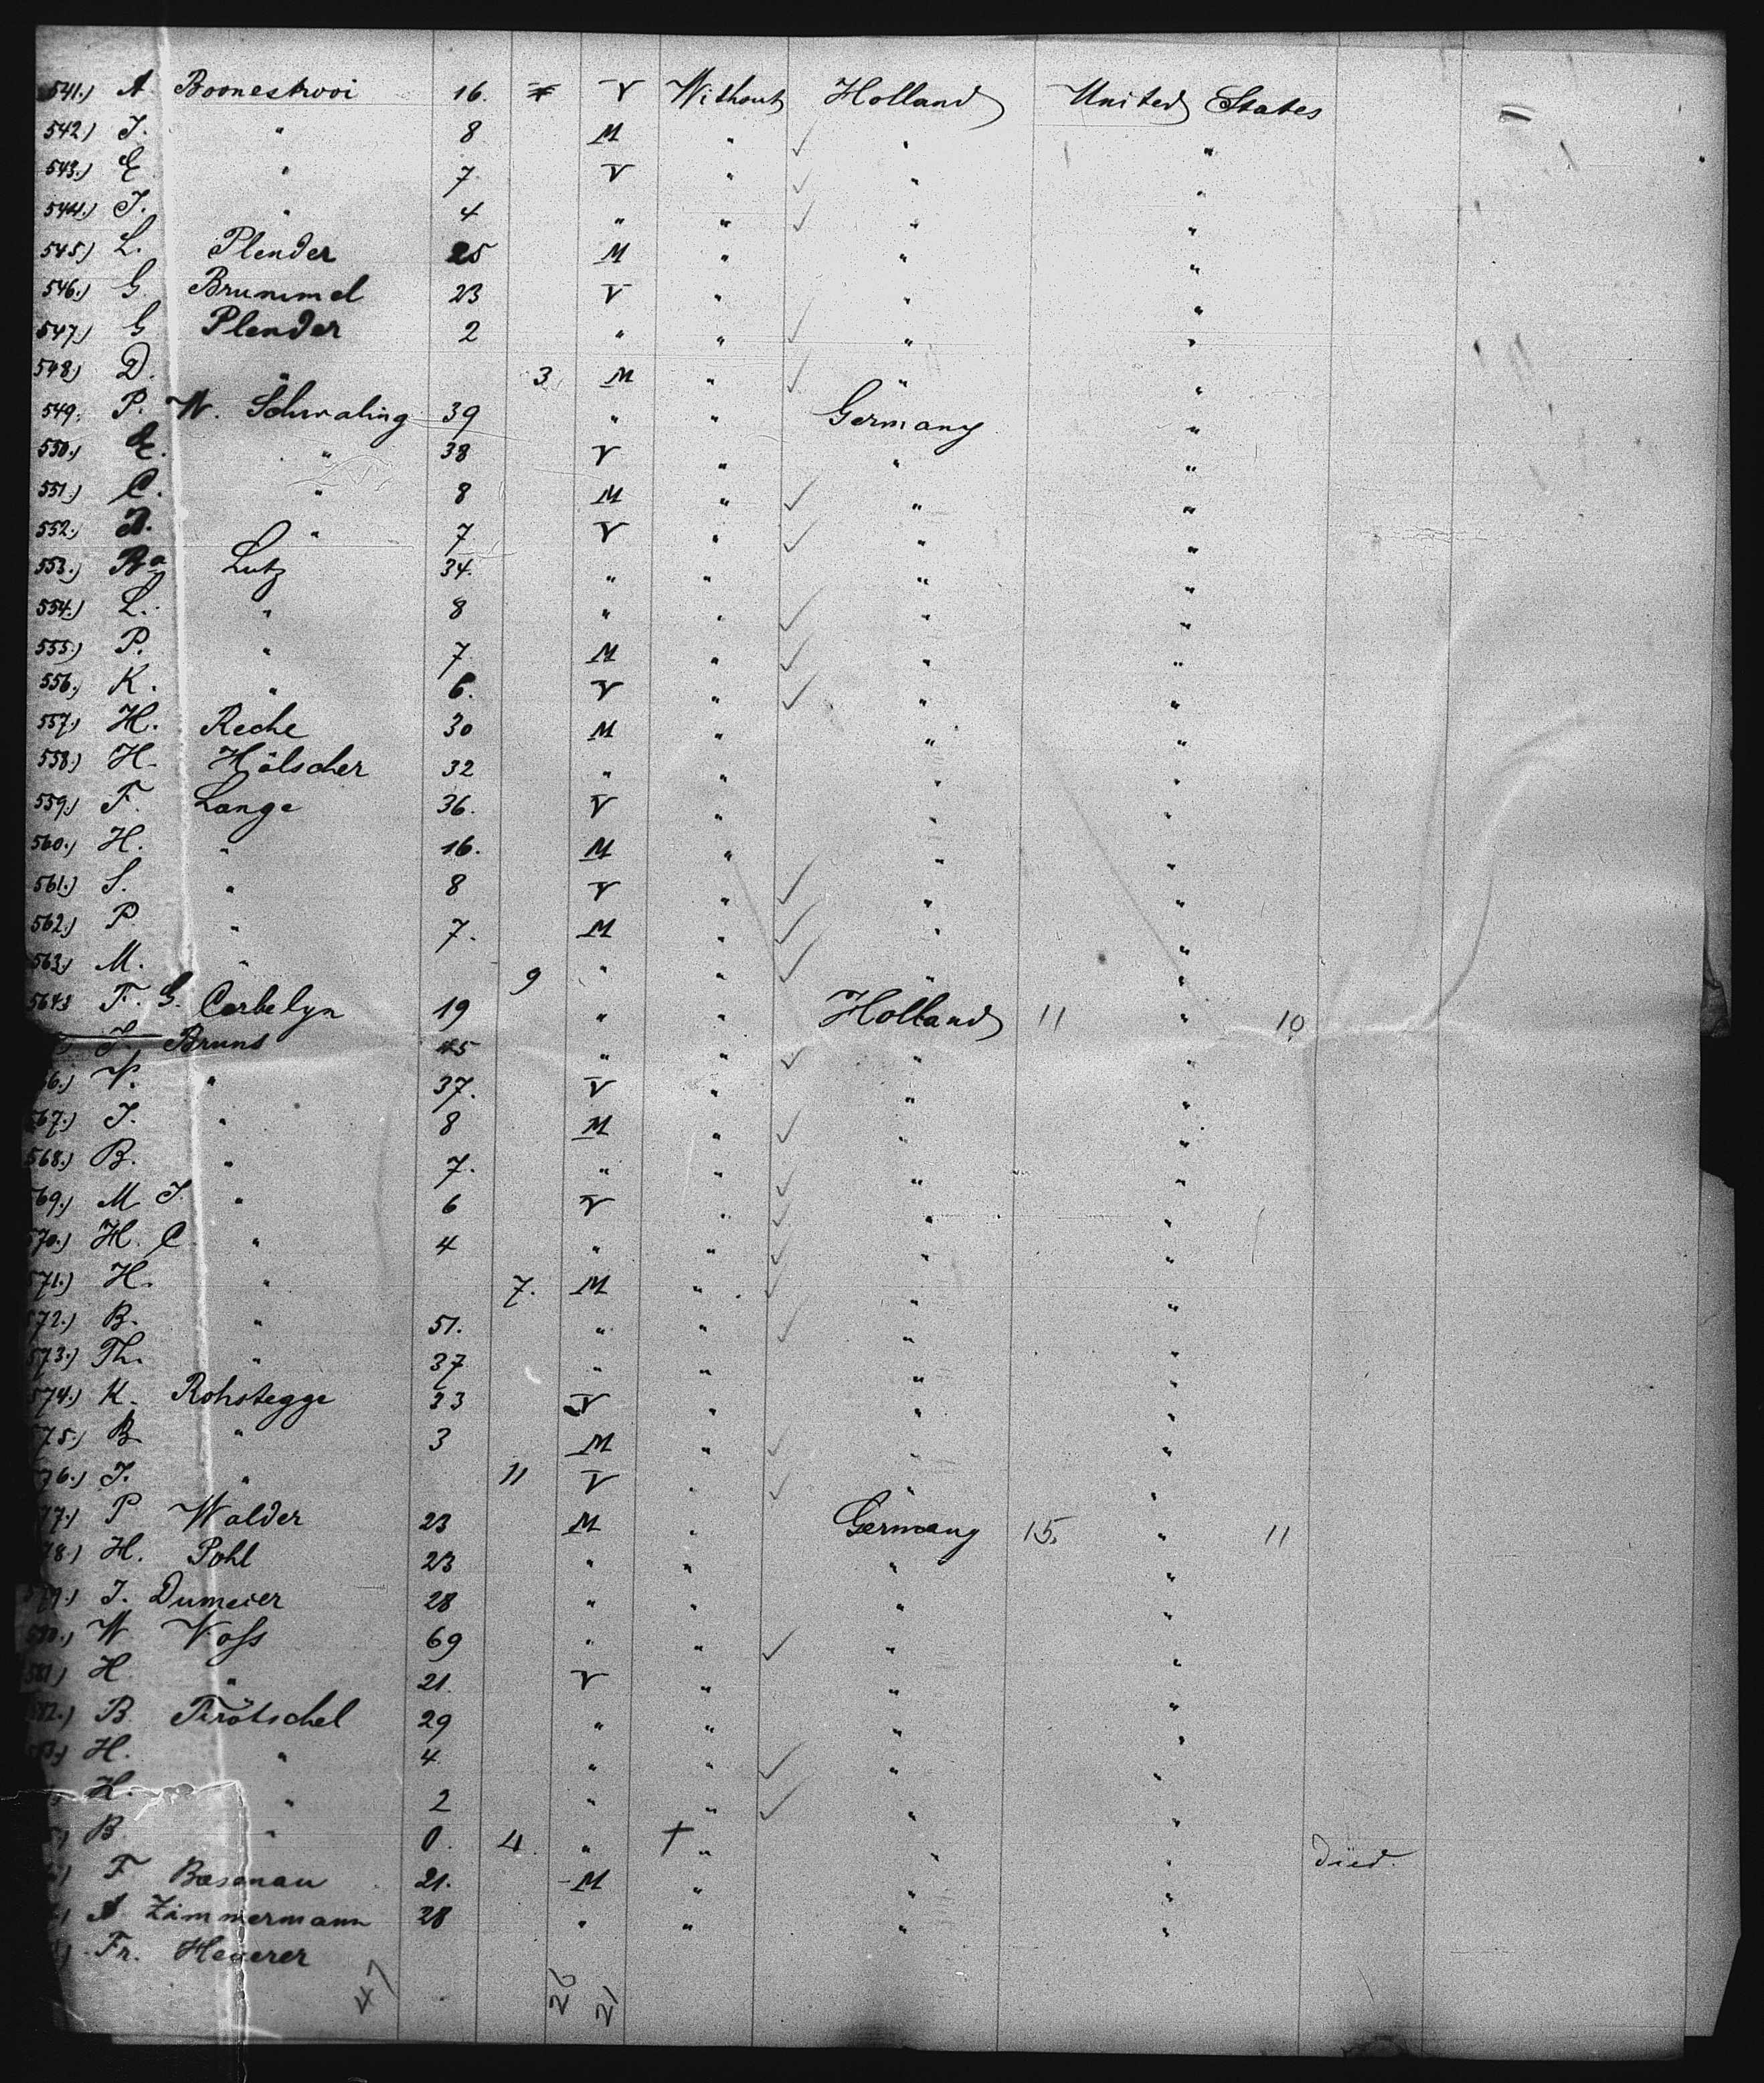 541.) A. Boonestrooi 16. V Without Holland United States
542.) J. " 8 M " ✓ " "
543.) E. " 7 V " ✓ " "
544.) J. " 4 " " ✓ " "
545.) L. Plender 25 M " " "
546.) G. Brummel 23 V " " "
547.) G Plender 2 " " ✓ " "
548.) D. " 3 M " ✓ " "
549. P. W. Schwaling 39 " " Germany "
550.) E. " 38 V " " "
551.) C. " 8 M " ✓ " "
552.) " 7 V " ✓ " "
553.) Lutz 34. " " " "
554.) L. " 8 " " ✓ " "
555.) P. " 7. M " ✓ " "
556.) K. " 6. V " ✓ " "
557.) H. Reche 30 M " " "
558.) H. Hölscher 32 " " " "
559.) F. Lange 36. V " " "
560.) H. " 16. M " " "
561.) S. " 8 V " ✓ " "
562.) P. " 7. M " ✓ " "
563.) M. " 9 " " ✓ " "
564.) F. G. Corbelyn 19 " " Holland 11 " 10
J. Bruns 45 " " ✓ " "
6.) V. " 37. V " " "
567.) J. " 8 M " ✓ " "
568.) B. " 7. " " ✓ " "
569.) M J. " 6 V " ✓ " "
570.) H. C. " 4 " " ✓ " "
571.) H. " 7. M " ✓ " "
572.) B. " 51. " " ✓ " "
573.) Th. " 37 " " " "
574.) K. Rohstegge 33 V " " "
75.) B. " 3 M " ✓ " "
76.) J. " 11 V " ✓ " "
77.) P. Walder 23 M " Germany 15. " 11
78.) H. Pohl 23 " " " "
579.) J. Dumeier 28 " " " "
580.) W Voss 69 " " ✓ " "
581.) H " 21. V " " "
582.) B. Pirötschel 29 " " " "
583.) H. " 4 " " ✓ " "
H. " 2 " " ✓ " "
B. " 0. 4. " † " " " Died.
F. Basanau 21. M " " "
A Zimmermann 28 " " " "
Fr. Heuerer
47 26 21